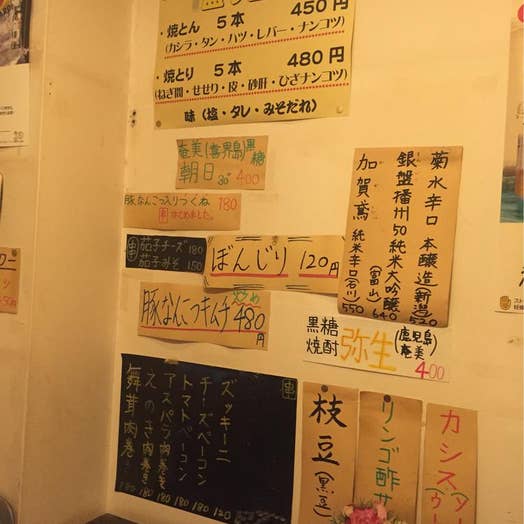 ・焼とん 5本 450円
(カシラ・タン・ハツ・レバー・ナンコツ)
・焼とり 5本 480円
(ねぎ間・せせり・皮・砂肝・ひざナンコツ)
味(塩・タレ・みそだれ)
奄美(喜界島)黒糖
朝日 30° 400
豚なんこつ入りつくね 180
串 はじめました。
串 茄子チーズ 180
茄子みそ 150
ぼんじり 120円
豚なんこつキムチ炒め 480円
菊水辛口 本醸造(新潟) 520
銀盤播州50 純米大吟醸(富山) 640
加賀鳶 純米辛口(石川) 550
黒糖焼酎 弥生 (鹿児島奄美) 400
串
ズッキーニ 120
チーズベーコン 180
トマトベーコン 180
アスパラ肉巻き 180
えのき肉巻き 180
舞茸肉巻き 180
枝豆(黒豆)
リンゴ酢サ
カシス